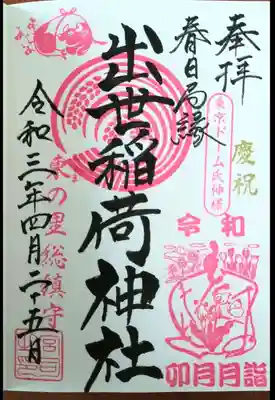 奉拝
慶祝
春日局縁
東京ドーム氏神様
出世稲荷神社
令和
卯月月詣
東の里総鎮守
令和三年四月二十五日